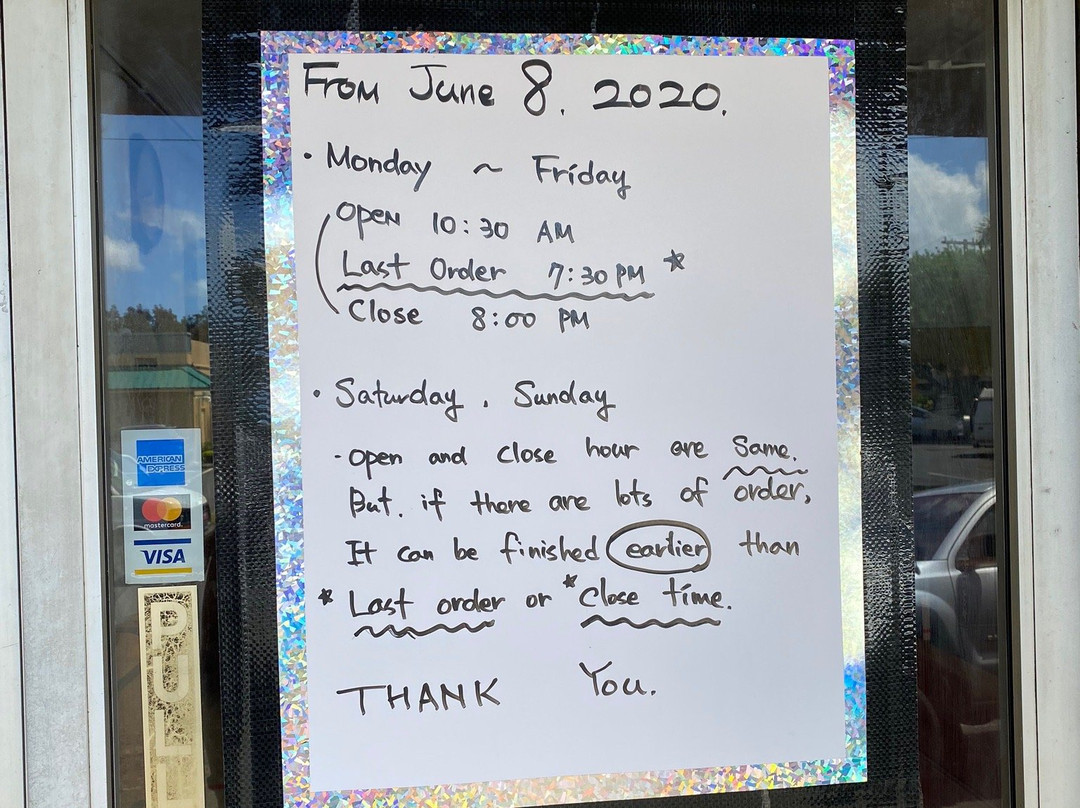 From June 8. 2020.
• Monday ~ Friday
Open 10:30 AM
Last Order 7:30 PM *
Close 8:00 PM
• Saturday. Sunday
- open and close hour are same.
But. if there are lots of order,
It can be finished earlier than
* Last order or * close time.
THANK You.
AMERICAN
EXPRESS
mastercard.
VISA
PULL